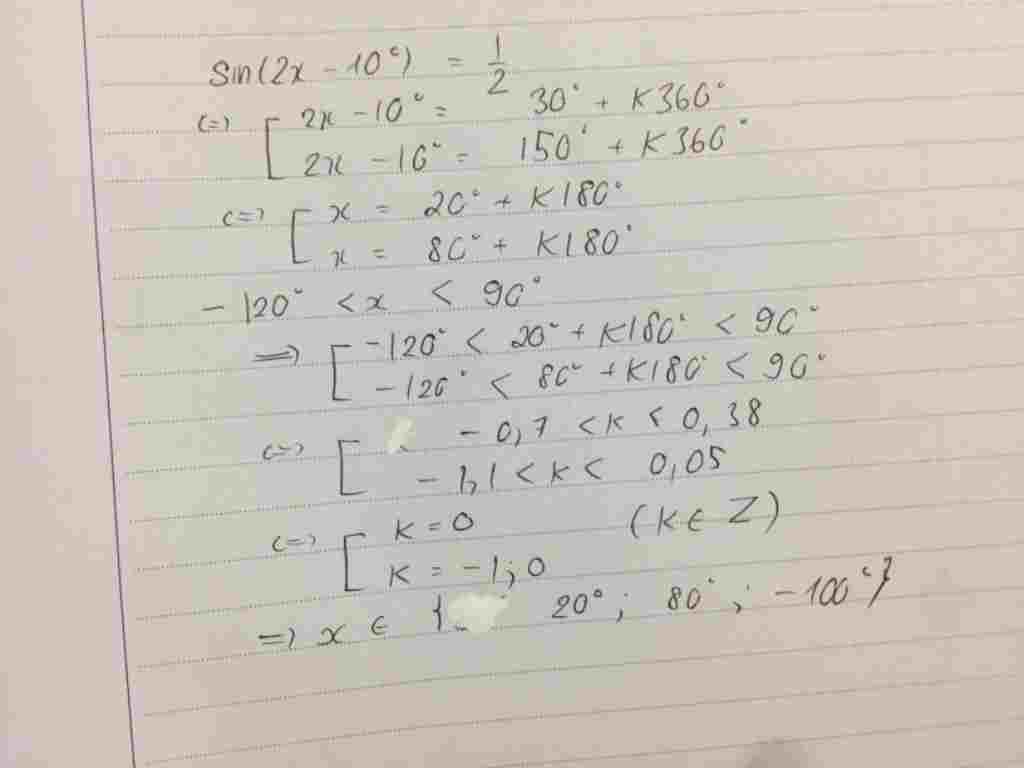 Sin(2x - 10°) = 1/2
(=) [ 2x - 10° = 30° + K360°
2x - 10° = 150° + K360°
(=) [ x = 20° + K180°
x = 80° + K180°
- 120° < x < 90°
=) [ -120° < 20° + K180° < 90°
-120° < 80° + K180° < 90°
(=) [ - 0,7 < K < 0,38
- 1,1 < K < 0,05
(=) [ K = 0 (K ∈ Z)
K = -1; 0
=) x ∈ { 20°; 80°; -100°}